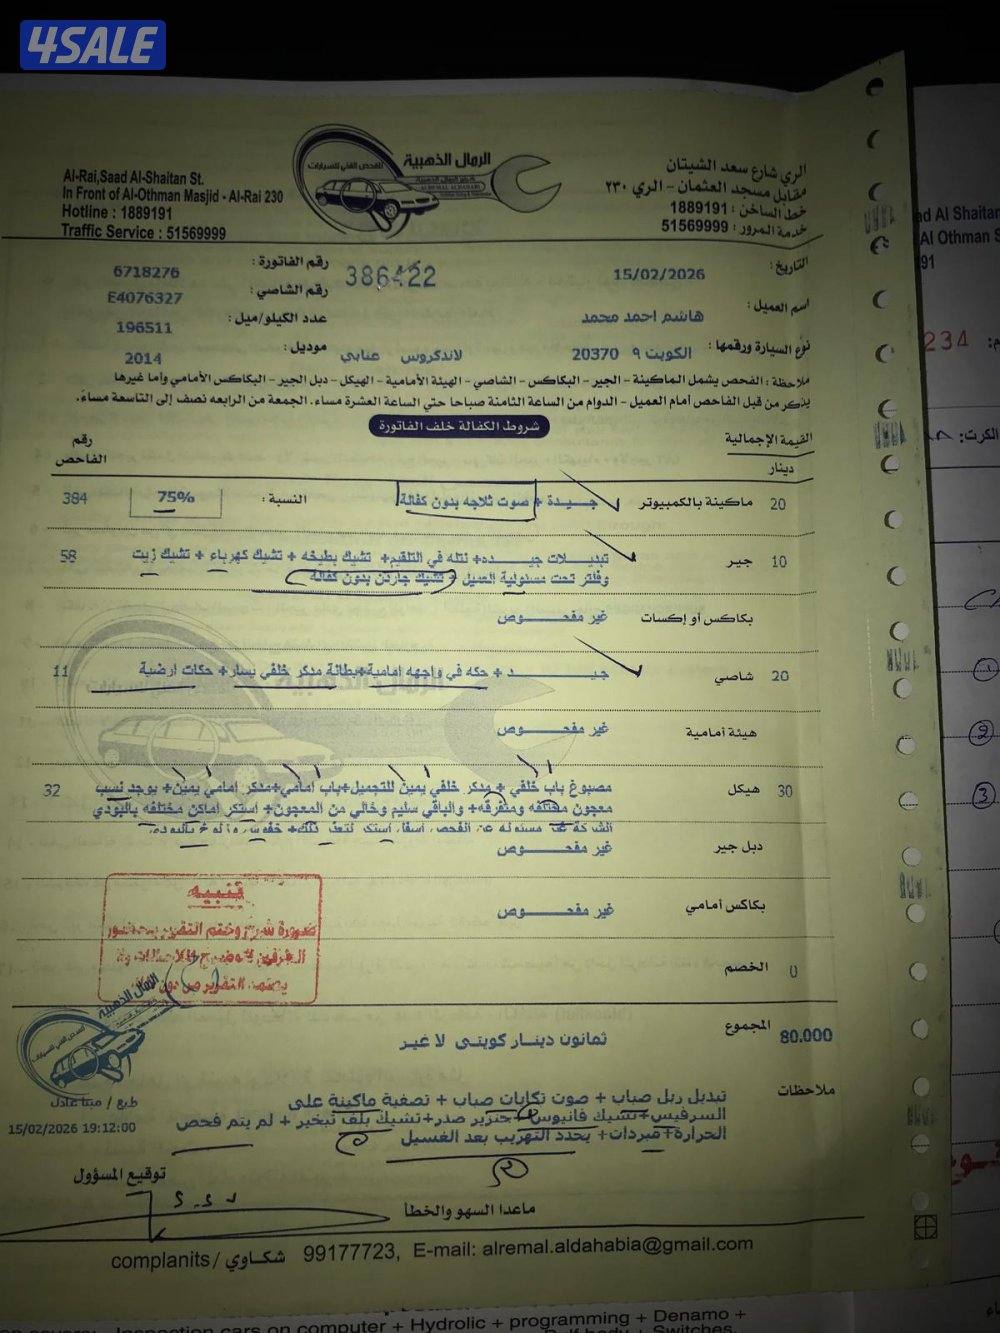 4SALE
Al-Rai,Saad Al-Shaitan St.
In Front of Al-Othman Masjid - Al-Rai 230
Hotline : 1889191
Traffic Service : 51569999
الرمال الذهبية
للفحص الفني للسيارات
الري شارع سعد الشيتان
مقابل مسجد العثمان - الري ٢٣٠
خط الساخن : 1889191
خدمة المرور : 51569999
التاريخ : 15/02/2026
386422
رقم الفاتورة : 6718276
رقم الشاصي : E4076327
اسم العميل : هاشم احمد محمد
عدد الكيلو/ميل : 196511
نوع السيارة ورقمها : الكويت ٩ 20370 لاندكروس عنابي
موديل : 2014
ملاحظة : الفحص يشمل الماكينة - الجير - البكاكس - الشاصي - الهيئة الأمامية - الهيكل - دبل الجير - البكاكس الأمامي وأما غيرها
يذكر من قبل الفاحص أمام العميل - الدوام من الساعة الثامنة صباحا حتي الساعة العشرة مساء، الجمعة من الرابعه نصف إلى التاسعة مساء.
شروط الكفالة خلف الفاتورة
القيمة الإجمالية
دينار
رقم الفاحص
20 ماكينة بالكمبيوتر جيدة + صوت ثلاجه بدون كفالة النسبة : 75% 384
10 جير تبديلات جيده+ نتله في التلقيم+ تشيك بطيخه + تشيك كهرباء + تشيك زيت 58
وفلتر تحت مسئولية العميل + تشيك جاردن بدون كفالة
بكاكس أو إكسات غير مفحوص
20 شاصي جيد + حكه في واجهه امامية+بطانة مدكر خلفي يسار + حكات ارضية 11
هيئة أمامية غير مفحوص
30 هيكل مصبوغ باب خلفي + مدكر خلفي يمين للتجميل+باب امامي+مدكر امامي يمين+ يوجد نسب 32
معجون مختلفه ومتفرقه+ والباقي سليم وخالي من المعجون+ استكر اماكن مختلفه بالبودي
الشركة غير مسئوله عن الفحص اسفل استكر لتعذر ذلك+ خفوس
دبل جير غير مفحوص
بكاكس أمامي غير مفحوص
0 الخصم
80.000 المجموع ثمانون دينار كويتي لا غير
تنبيه
ضرورة شرح وختم التقرير بحضور
الطرفين
الرمال الذهبية
ملاحظات
تبديل ربل صباب + صوت تكايات صباب + تصفية ماكينة على
السرفيس+ تشيك فانيوس+ جنزير صدر+تشيك بلف تبخير + لم يتم فحص
الحرارة+ مبردات+ يحدد التهريب بعد الغسيل
15/02/2026 19:12:00
توقيع المسؤول
ماعدا السهو والخطأ
complanits / شكاوي 99177723, E-mail: alremal.aldahabia@gmail.com
ad Al Shaitan
Al Othman
91
234
الكرت:
1
2
3
Inspection cars on computer + Hydrolic + programming + Denamo +
Switches.